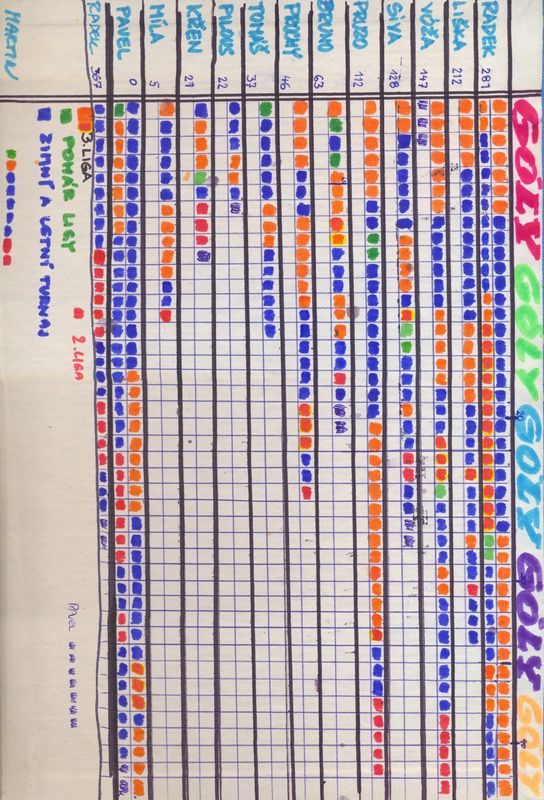 GÓLY GÓLY GÓLY GÓLY GÓLY
20
40
RADEK 281
LIŠKA 212
VÓŽA 147
SÍVA 128
PROZO 112
BRUNO 63
46
TOMÁŠ 37
22
KŘEN 21
MÍLA 5
PAVEL 0
RADEK 367
3. LIGA
2. LIGA
POHÁR LIGY
ZIMNÍ A LETNÍ TURNAJ
PAVEL
MARTIN